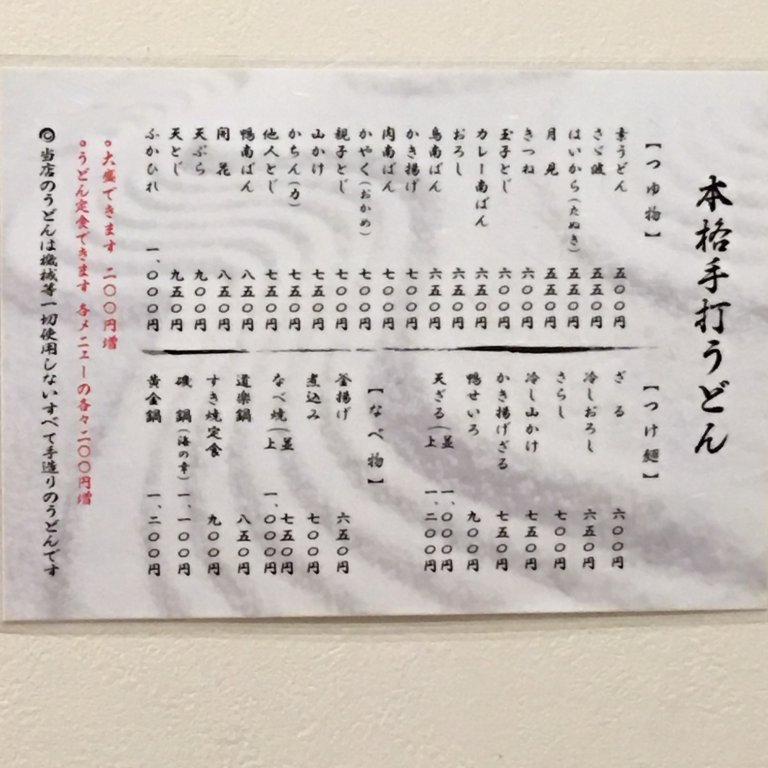 本格手打うどん
【つゆ物】
素うどん 五〇〇円
さゞ波 五五〇円
はいから(たぬき) 五五〇円
月見 五五〇円
きつね 六〇〇円
玉子とじ 六〇〇円
カレー南ばん 六五〇円
おろし 六五〇円
鳥南ばん 六五〇円
かき揚げ 七〇〇円
肉南ばん 七〇〇円
かやく(おかめ) 七〇〇円
親子とじ 七〇〇円
山かけ 七五〇円
かちん(力) 七五〇円
他人とじ 七五〇円
鴨南ばん 八五〇円
開花 八五〇円
天ぷら 九〇〇円
天とじ 九五〇円
ふかひれ 一、〇〇〇円
【つけ麺】
ざる 六〇〇円
冷しおろし 六五〇円
さらし 七〇〇円
冷し山かけ 七五〇円
かき揚げざる 七五〇円
鴨せいろ 九〇〇円
天ざる(並 一、〇〇〇円
上 一、二〇〇円
【なべ物】
釜揚げ 六五〇円
煮込み 七〇〇円
なべ焼(並 七五〇円
上 一、〇〇〇円
道楽鍋 八五〇円
すき焼定食 九〇〇円
磯鍋(海の幸) 一、一〇〇円
黄金鍋 一、二〇〇円
○大盛できます 二〇〇円増
○うどん定食できます 各メニューの各々二〇〇円増
◎当店のうどんは機械等一切使用しないすべて手造りのうどんです